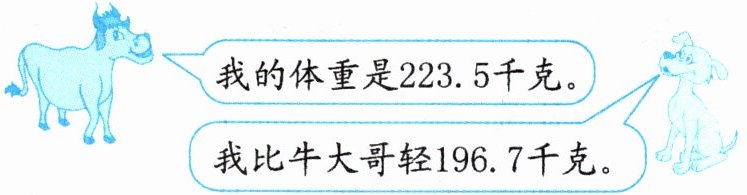 我的体重是223.5千克。
我比牛大哥轻196.7千克。